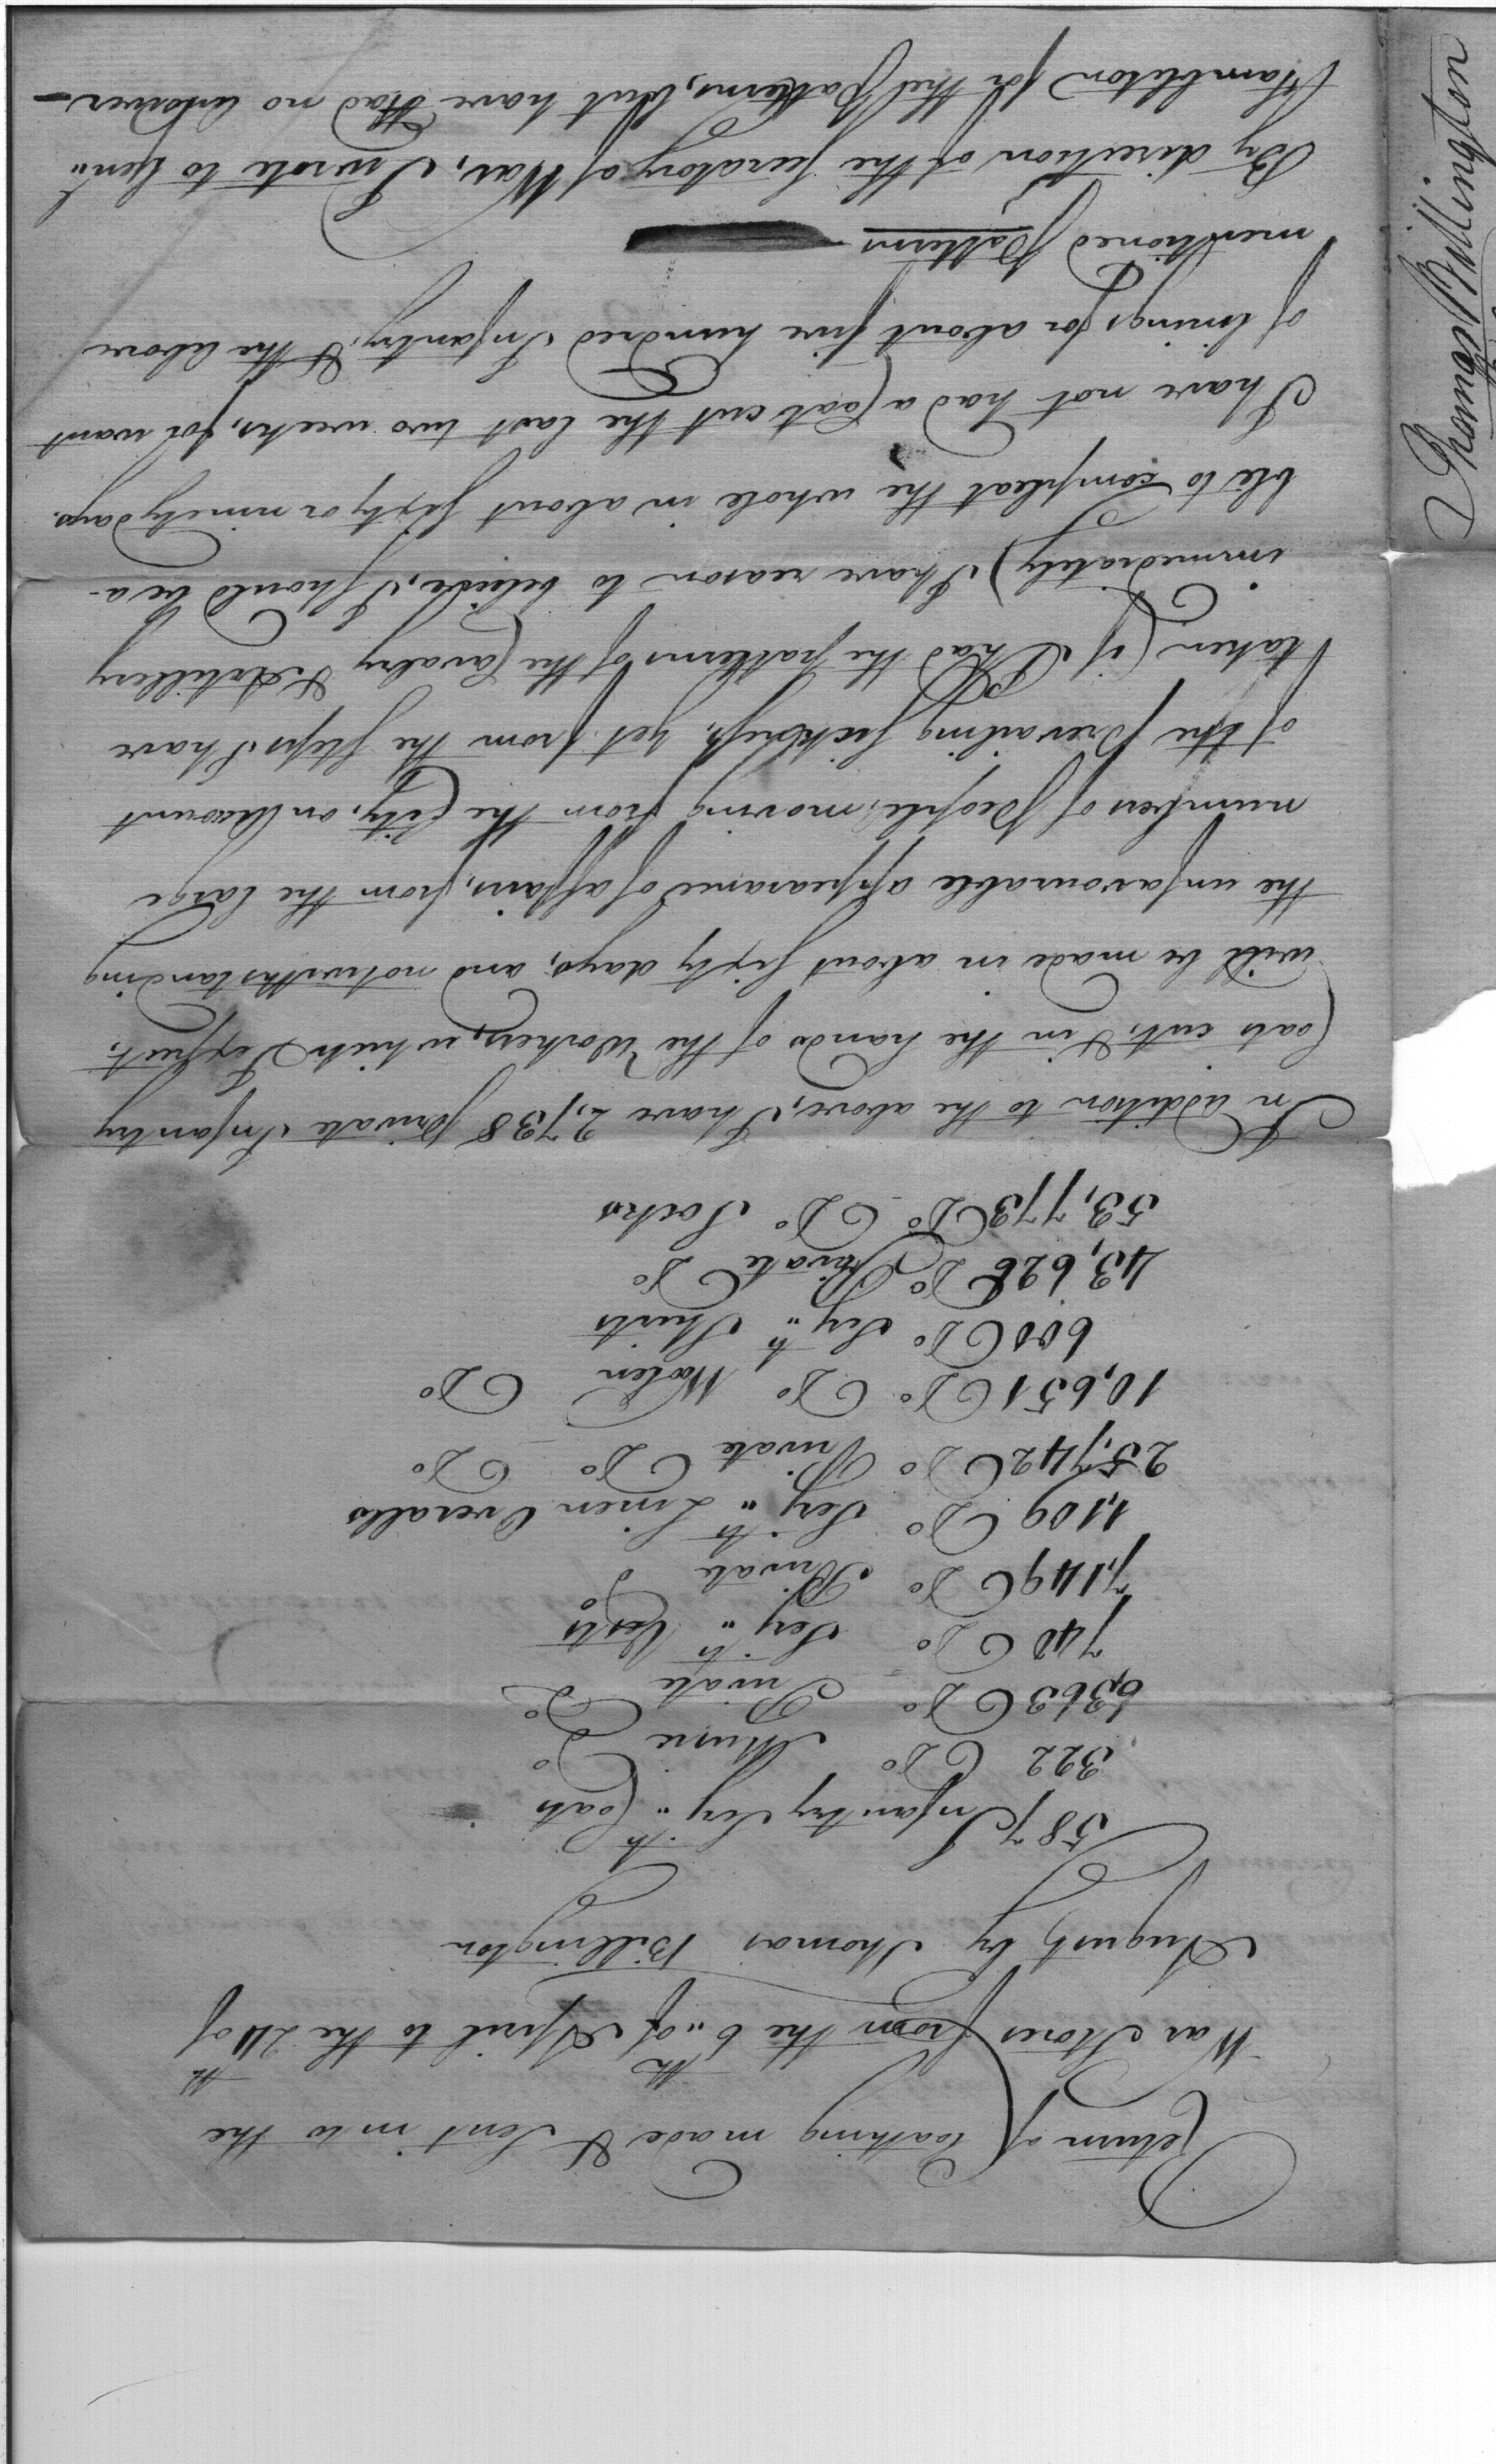 Return of Cloathing made & Sent in to the
War Stores from the 6th of April to the 24th of
August, by Thomas Billington
587 Infantry Serjts Coats
322 Do Music Do
6,363 Do Private Do
740 Do Serjts Vests
7,149 Do Private Do
1,109 Do Serjts Linen Overalls
25,742 Do Private Do Do
10,651 Do Do Woolen Do
600 Do Serjts Shirts
43,628 Do Private Do
53,773 Do Do Socks
In addition to the above, I have 2,738 private Infantry
Coats cut, & in the hands of the Workers, which I expect,
will be made in about sixty days, and notwithstanding
the unfavourable appearance of affairs, from the large
numbers of People, moving from the City, on Account
of the prevailing sickness, yet from the steps I have
taken (if I had the patterns of the Cavalry & Artillery
immediately) I have reason to beleive, I should be a-
ble to compleat the whole in about sixty or ninety days.
I have not had a Coat cut the last two weeks, for want
of linings for about five hundred Infantry, & the above
mentioned Patterns
By direction of the Secratory of War, I wrote to Genl.
Hambleton for the Patterns, but have Had no Answer—
Thomas Billington